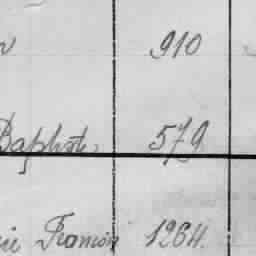 910
Baptist 579
François 1264